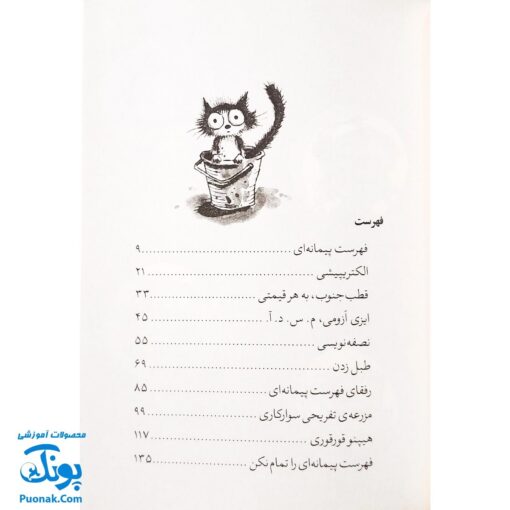 فهرست
فهرست پیمانه‌ای ........ ۹
الکتریپیشی ........ ۲۱
قطب جنوب، به هر قیمتی ........ ۳۳
ایزی اَزومی، م. س. د. آ. ........ ۴۵
نصفه‌نویسی ........ ۵۵
طبل زدن ........ ۶۹
رفقای فهرست پیمانه‌ای ........ ۸۵
مزرعه‌ی تفریحی سوارکاری ........ ۹۹
هیپنو قورقوری ........ ۱۱۷
فهرست پیمانه‌ای را تمام نکن ........ ۱۳۵
محصولات آموزشی
پونک
Puonak.Com